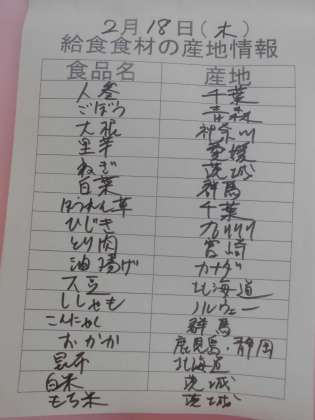 2月18日(木)
給食食材の産地情報
食品名 産地
人参 千葉
ごぼう 青森
大根 神奈川
里芋 愛媛
ねぎ 茨城
白菜 群馬
ほうれん草 千葉
ひじき 九州
とり肉 宮崎
油揚げ カナダ
大豆 北海道
ししゃも ノルウェー
こんにゃく 群馬
おかか 鹿児島・静岡
昆布 北海道
白米 茨城
もち米 茨城